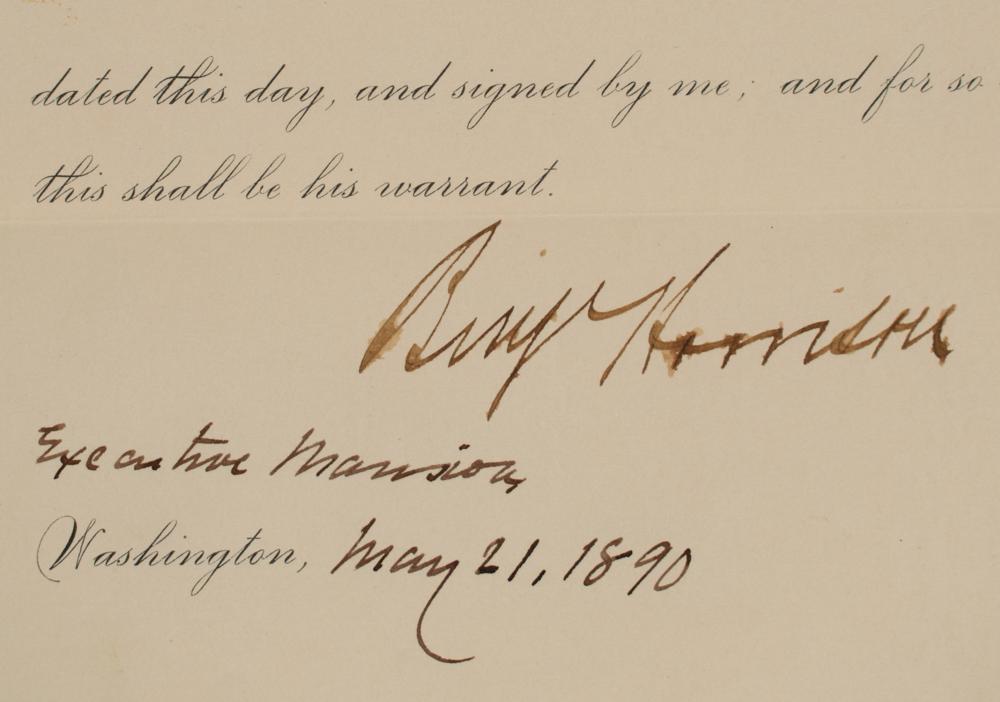 dated this day, and signed by me; and for so
this shall be his warrant.
Benj Harrison
Executive Mansion,
Washington, May 21, 1890